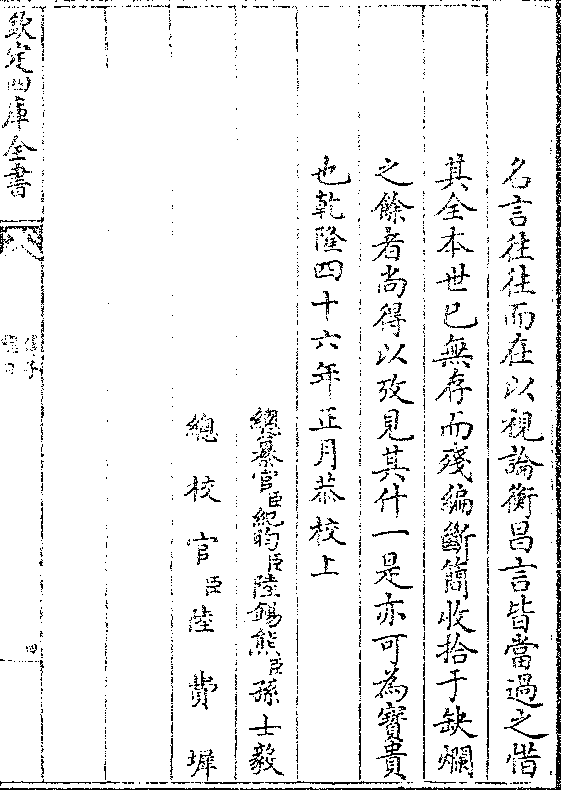 名言往往而在以視論衡昌言皆當過之惜
其全本世已無存而殘編斷簡收拾于缺爛
之餘者尚得以攷見其什一是亦可為寳貴
也乾隆四十六年正月恭校上
總纂官臣紀昀臣陸錫熊臣孫士毅
總校官臣陸費墀
欽定四庫全書
四